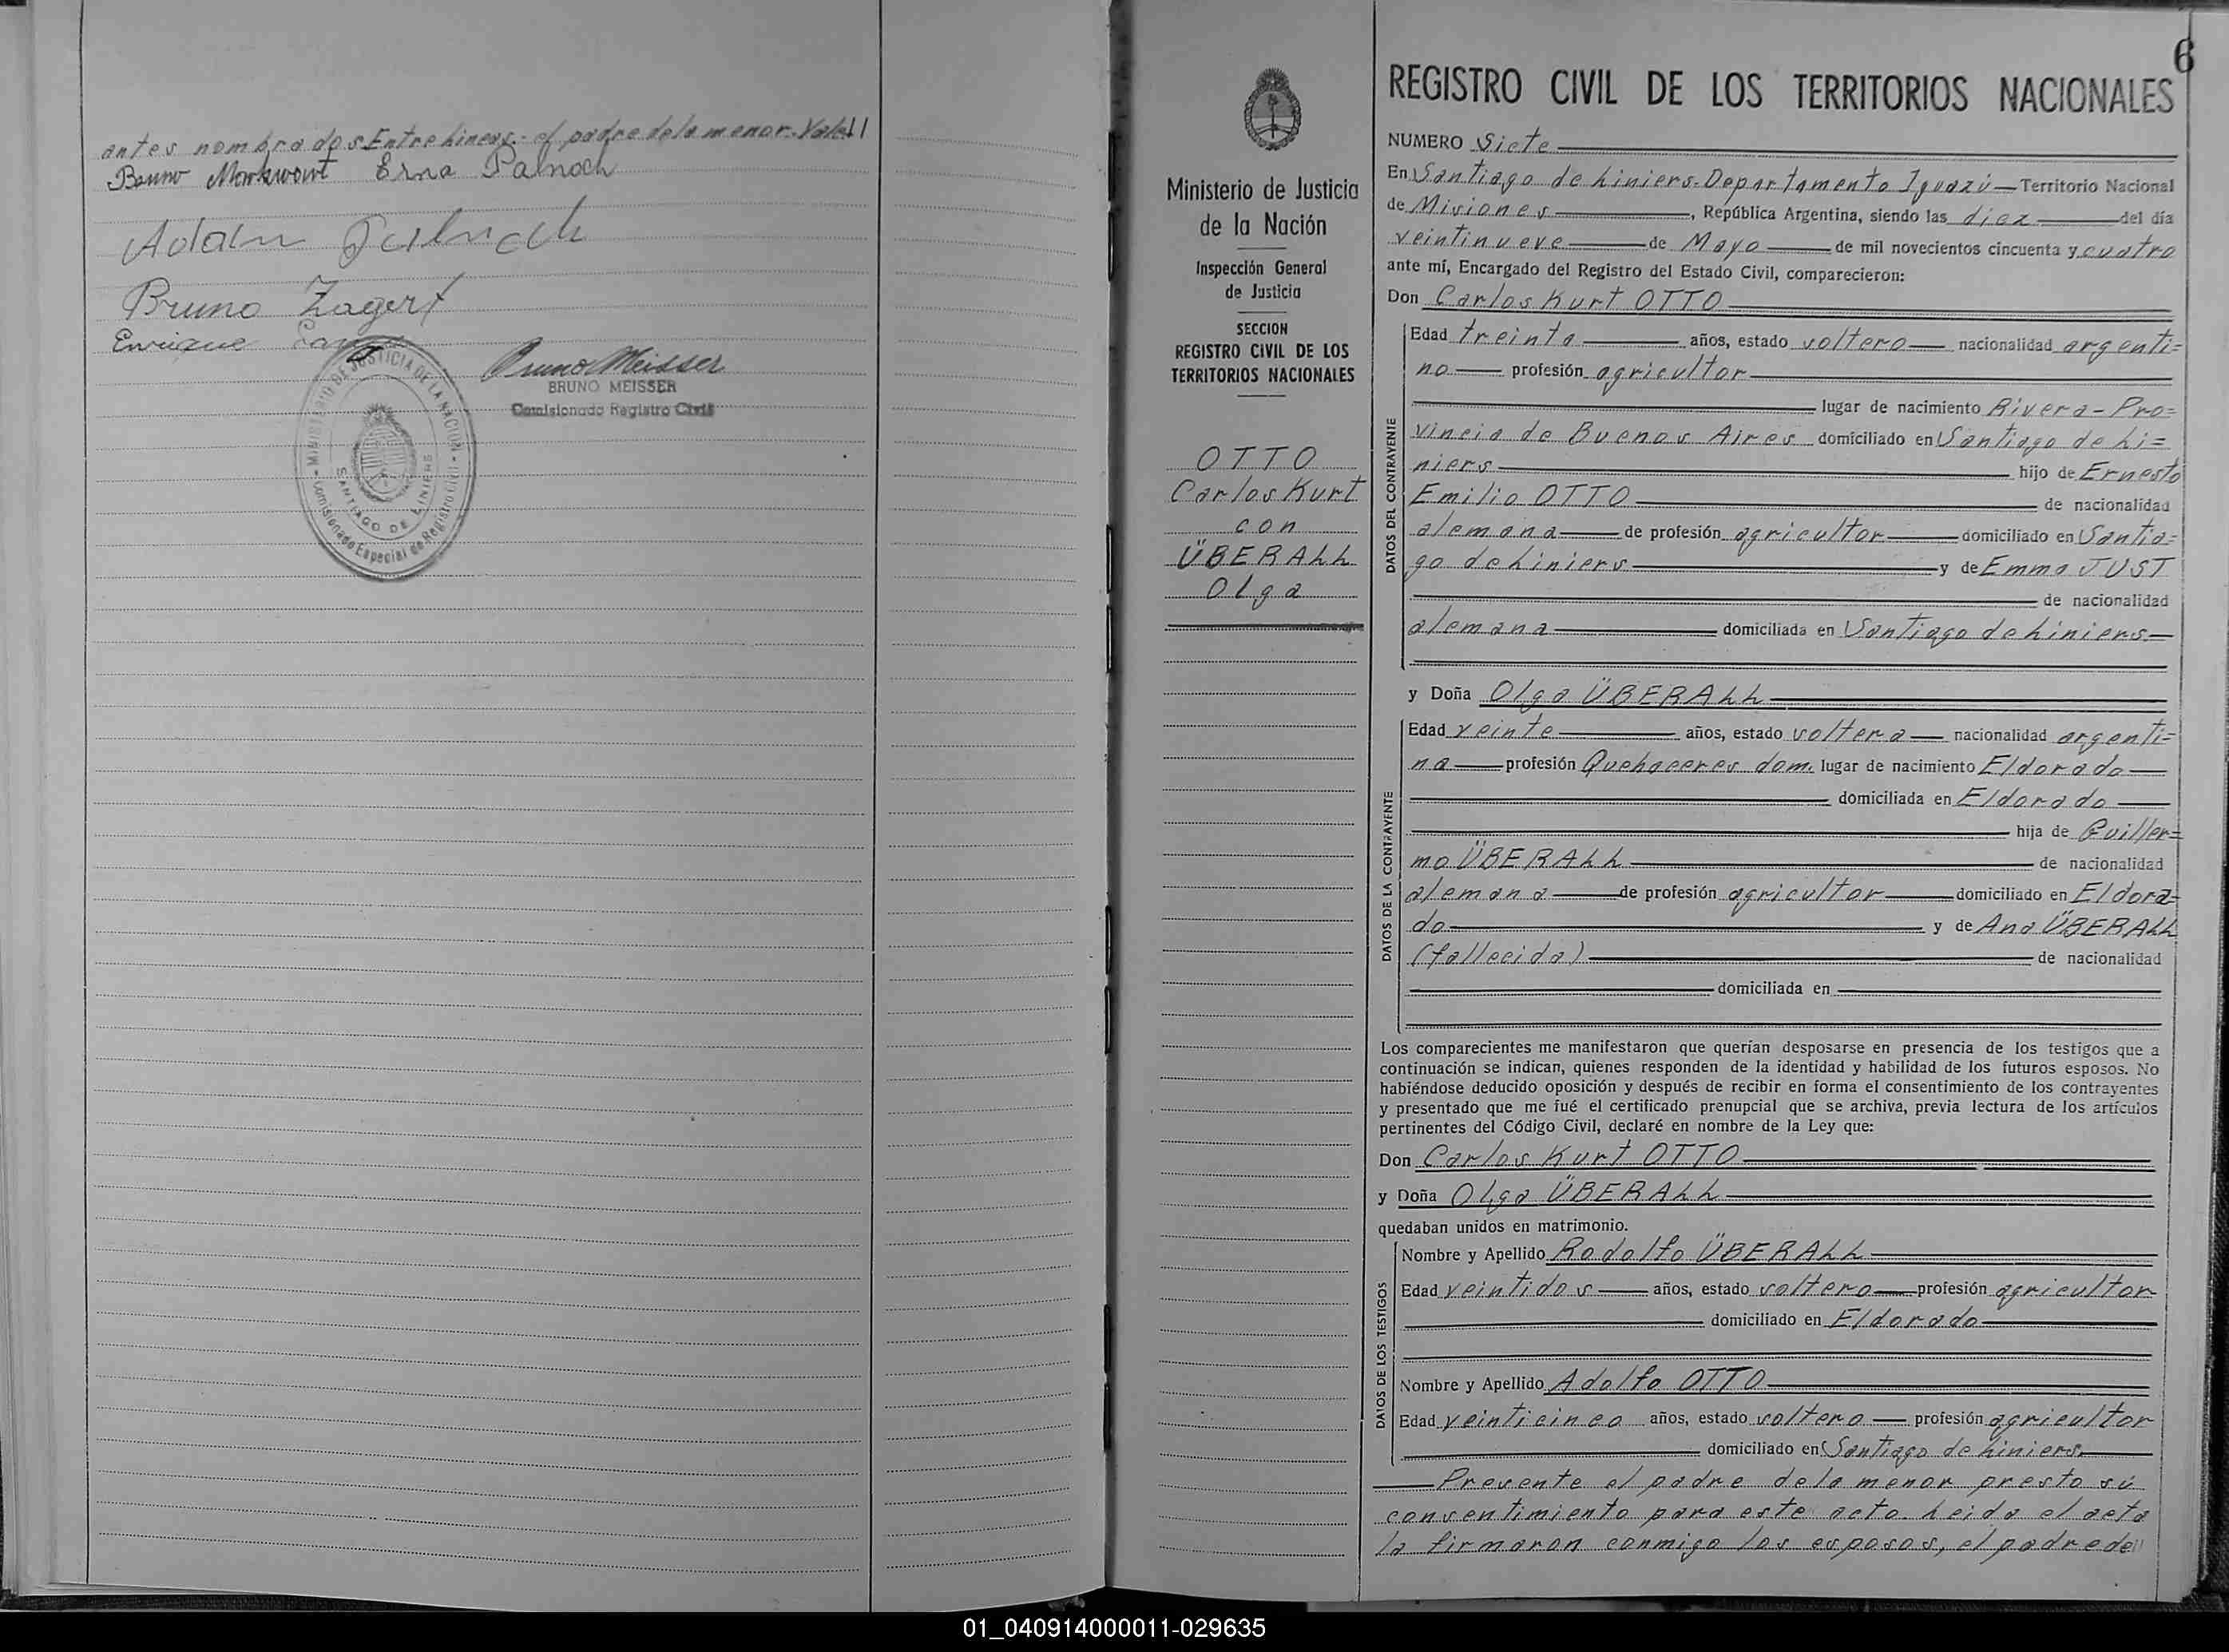 antes nombrados Entre Lineas: el padre de la menor. Vale.
Bruno Markwart Erna Palnoch
Adam Palnoch
Bruno Zagert
Enrique
Bruno Meisser
BRUNO MEISSER
Comisionado Registro Civil
MINISTERIO DE JUSTICIA DE LA NACION
SANTIAGO DE LINIERS
Comisionado Especial de Registro Civil
6
Ministerio de Justicia
de la Nación
Inspección General
de Justicia
SECCION
REGISTRO CIVIL DE LOS
TERRITORIOS NACIONALES
OTTO
Carlos Kurt
con
ÜBERALL
Olga
REGISTRO CIVIL DE LOS TERRITORIOS NACIONALES
NUMERO Siete
En Santiago de Liniers-Departamento Iguazú Territorio Nacional
de Misiones, República Argentina, siendo las diez del día
veintinueve de Mayo de mil novecientos cincuenta y cuatro
ante mí, Encargado del Registro del Estado Civil, comparecieron:
Don Carlos Kurt OTTO
DATOS DEL CONTRAYENTE
Edad treinta años, estado soltero nacionalidad argenti=
no profesión agricultor
lugar de nacimiento Rivera-Pro=
vincia de Buenos Aires domiciliado en Santiago de Li=
niers hijo de Ernesto
Emilio OTTO de nacionalidad
alemana de profesión agricultor domiciliado en Santia=
go de Liniers y de Emma JUST
de nacionalidad
alemana domiciliada en Santiago de Liniers
y Doña Olga ÜBERALL
DATOS DE LA CONTRAYENTE
Edad veinte años, estado soltera nacionalidad argenti=
na profesión Quehaceres dom. lugar de nacimiento Eldorado
domiciliada en Eldorado
hija de Guiller=
mo ÜBERALL de nacionalidad
alemana de profesión agricultor domiciliado en Eldora=
do y de Ana ÜBERALL
(fallecida) de nacionalidad
domiciliada en
Los comparecientes me manifestaron que querían desposarse en presencia de los testigos que a
continuación se indican, quienes responden de la identidad y habilidad de los futuros esposos. No
habiéndose deducido oposición y después de recibir en forma el consentimiento de los contrayentes
y presentado que me fué el certificado prenupcial que se archiva, previa lectura de los artículos
pertinentes del Código Civil, declaré en nombre de la Ley que:
Don Carlos Kurt OTTO
y Doña Olga ÜBERALL
quedaban unidos en matrimonio.
DATOS DE LOS TESTIGOS
Nombre y Apellido Rodolfo ÜBERALL
Edad veintidos años, estado soltero profesión agricultor
domiciliado en Eldorado
Nombre y Apellido Adolfo OTTO
Edad veinticinco años, estado soltero profesión agricultor
domiciliado en Santiago de Liniers
Presente el padre de la menor presto sú
consentimiento para este acto. Leida el acta
la firmaron conmigo los esposos, el padre de
01_040914000011-029635